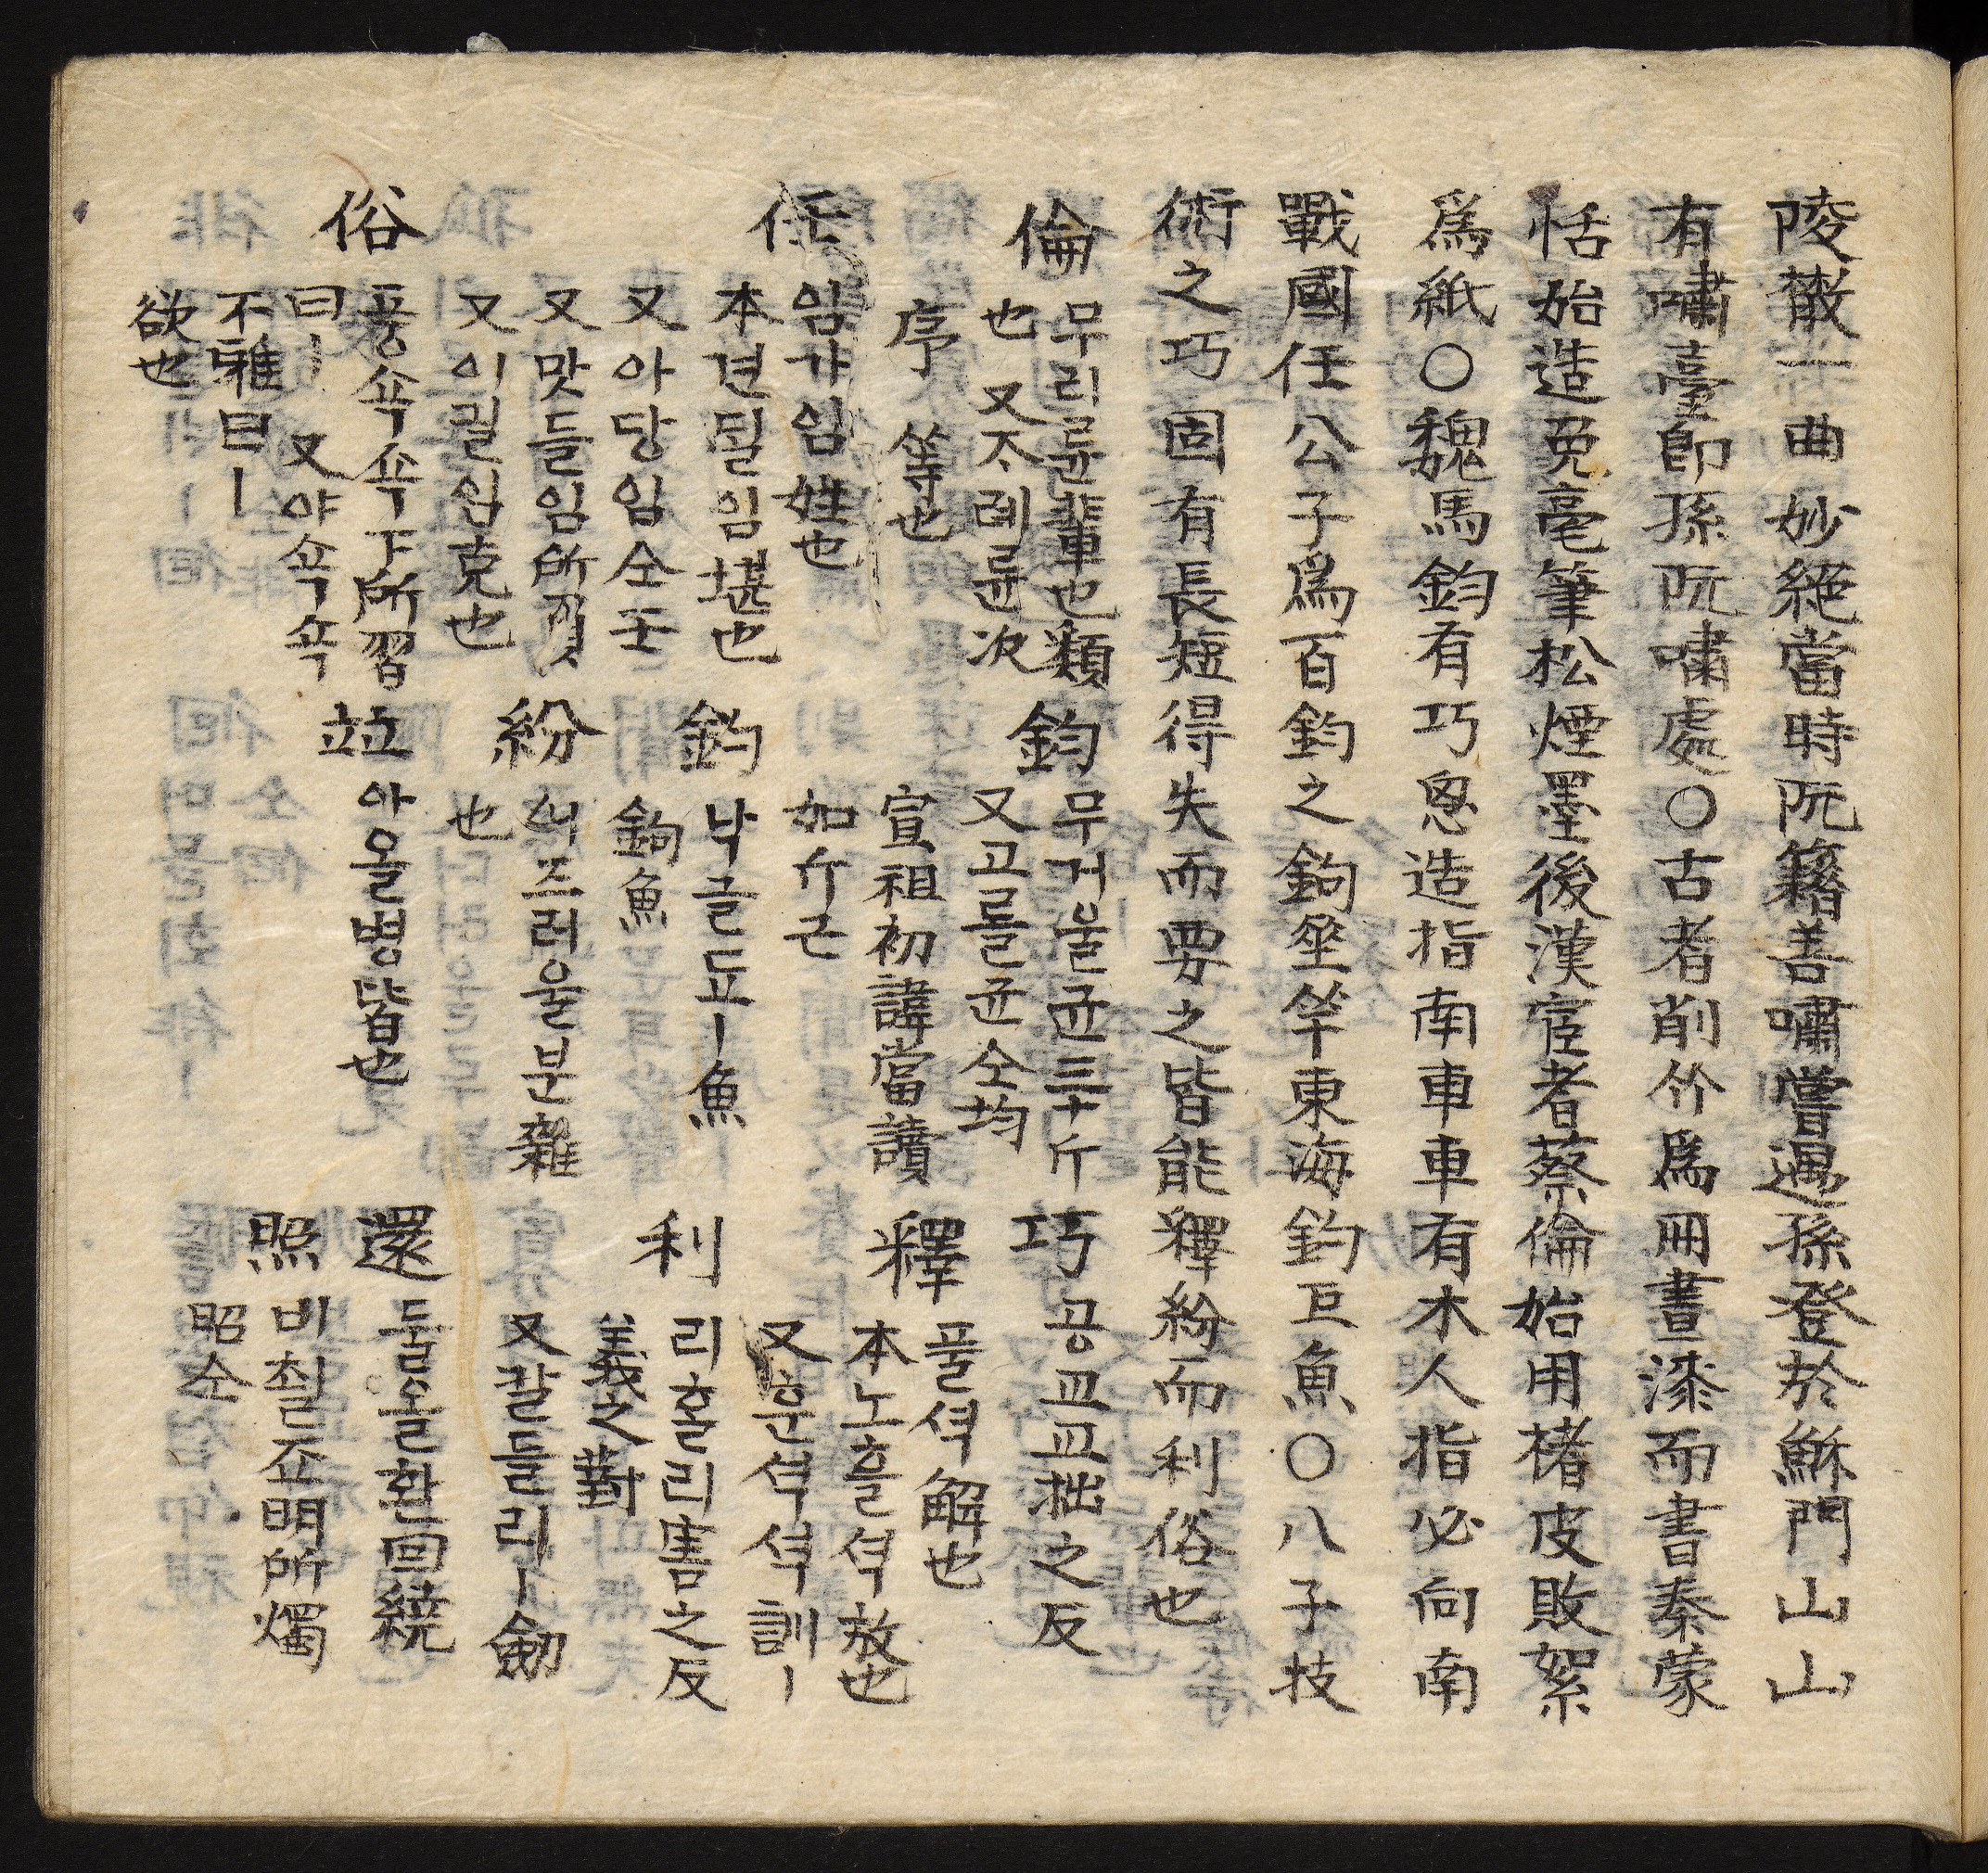 陵散一曲妙絕當時阮籍善嘯嘗遇孫登於穌門山山
有嘯臺卽孫阮嘯處○古者削竹爲冊畫漆而書秦蒙
恬始造兔毫筆松煙墨後漢宦者蔡倫始用楮皮敗絮
爲紙○魏馬鈞有巧思造指南車車有木人指必向南
戰國任公子爲百鈞之鉤垂竿東海釣巨魚○八子技
術之巧固有長短得失而要之皆能釋紛而利俗也
倫 무리륜輩也類
也 又ᄎᆞ례륜次
序 等也
鈞 무거울균三十斤
又고ᄅᆞᆯ균仝均
宣祖初諱當讀
如斤근
巧 공교교拙之反
任 임가임姓也
本견딜임堪也
又아당임仝壬
又맛들임所
又이긜임克也
釣 낙글됴ㅣ魚
鉤魚
釋 풀셕解也
本노흘셕放也
又훈셕셕訓ㅣ
利 리ᄒᆞᆯ리害之反
義之對
又칼들리ㅣ劒
紛 어즈러울분雜
也
俗 풍쇽쇽下所習
曰ㅣ 又야쇽쇽
不雅曰ㅣ
欲也
竝 아올병皆也
還 둘올환回繞
照 비쵤죠明所燭
昭仝